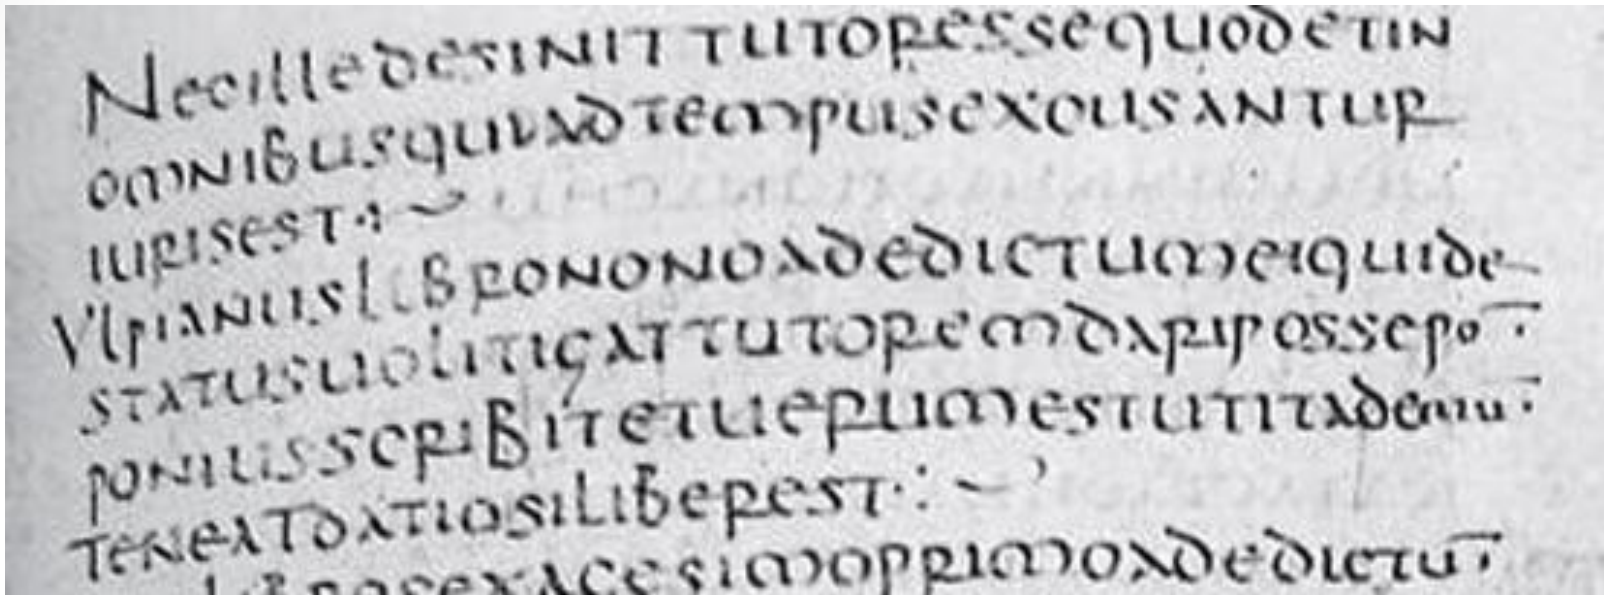 Necilledesinittutoressequodetin
omnibusquiadtempusexcusantur
iurisest
Ulpianuslibrononoadedictumeiquide
statusuolitigattutoremdariposse po
poniusscribitetuerumestutitademu
teneatdatiosiliberest
libro sexagesimoprimoadedictu